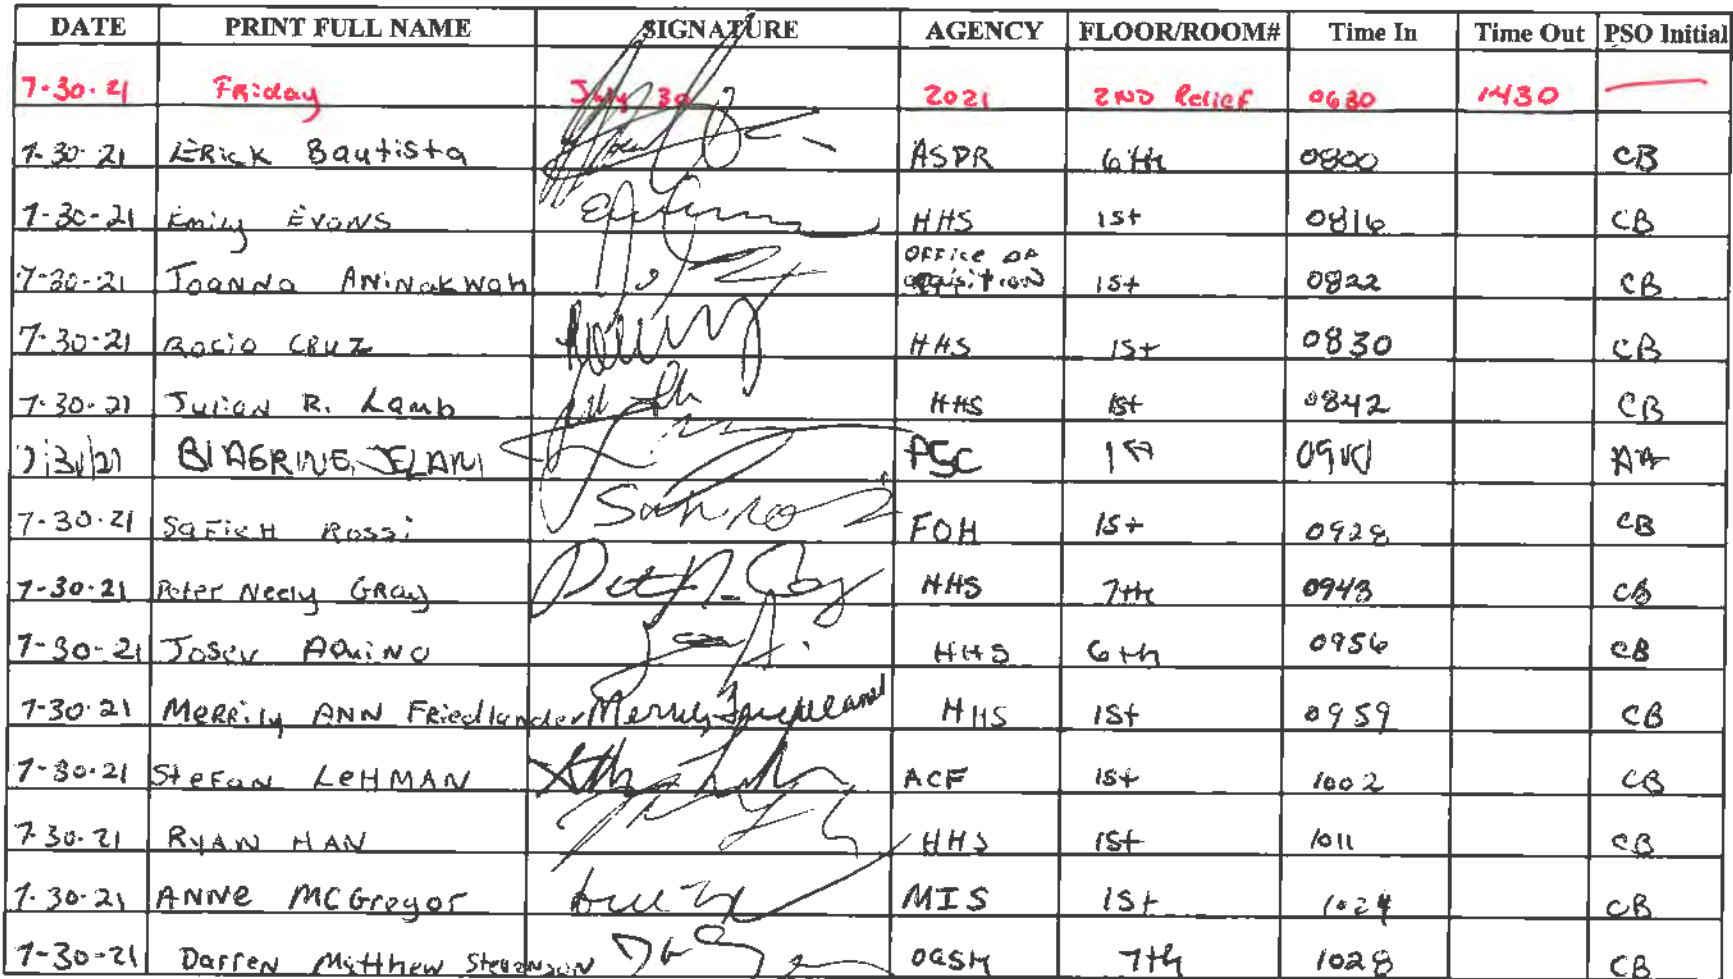 DATE PRINT FULL NAME SIGNATURE AGENCY FLOOR/ROOM# Time In Time Out PSO Initial
7-30-21 Friday July 30 2021 2ND Relief 0630 1430
7-30-21 Erick Bautista ASPR 6th 0800 CB
7-30-21 Emily Evons HHS 1st 0816 CB
7-30-21 Joanna Aninakwah OFFICE OF Aquisition 1st 0822 CB
7-30-21 Rocio CRUZ HHS 1st 0830 CB
7-30-21 Julian R. Lamb HHS 1st 0842 CB
BLAGRINE, JELANI PSC 1st AA
7-30-21 Safieh Rossi FOH 1st 0928 CB
7-30-21 Peter Neely Gray HHS 7th 0943 CB
7-30-21 Josev Aquino HHS 6th 0956 CB
7-30-21 Merrily ANN Friedlander HHS 1st 0959 CB
7-30-21 Stefan LeHMAN ACF 1st 1002 CB
7-30-21 RYAN HAN HHS 1st 1011 CB
7-30-21 ANNe McGregor MIS 1st 1024 CB
7-30-21 Darren Matthew Stevenson OGSM 7th 1028 CB